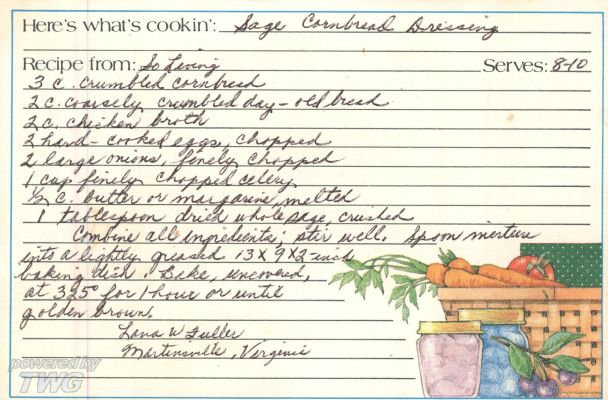 Here's what's cookin': Sage Cornbread Dressing
Recipe from: So Living Serves: 8-10
3 c. crumbled cornbread
2 c. coarsely crumbled day-old bread
2 c. chicken broth
2 hard-cooked eggs, chopped
2 large onions, finely chopped
1 cup finely chopped celery
1/2 c. butter or margarine, melted
1 tablespoon dried whole sage, crushed
Combine all ingredients; stir well. Spoon mixture
into a lightly greased 13 x 9 x 2-inch
baking dish. Bake, uncovered,
at 325° for 1 hour or until
golden brown.
Lana W Fuller
Martinsville, Virginia
powered by
TWG